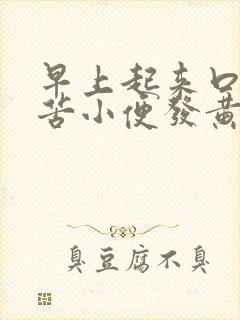 早上起来口
苦小便發黃
臭豆腐不臭